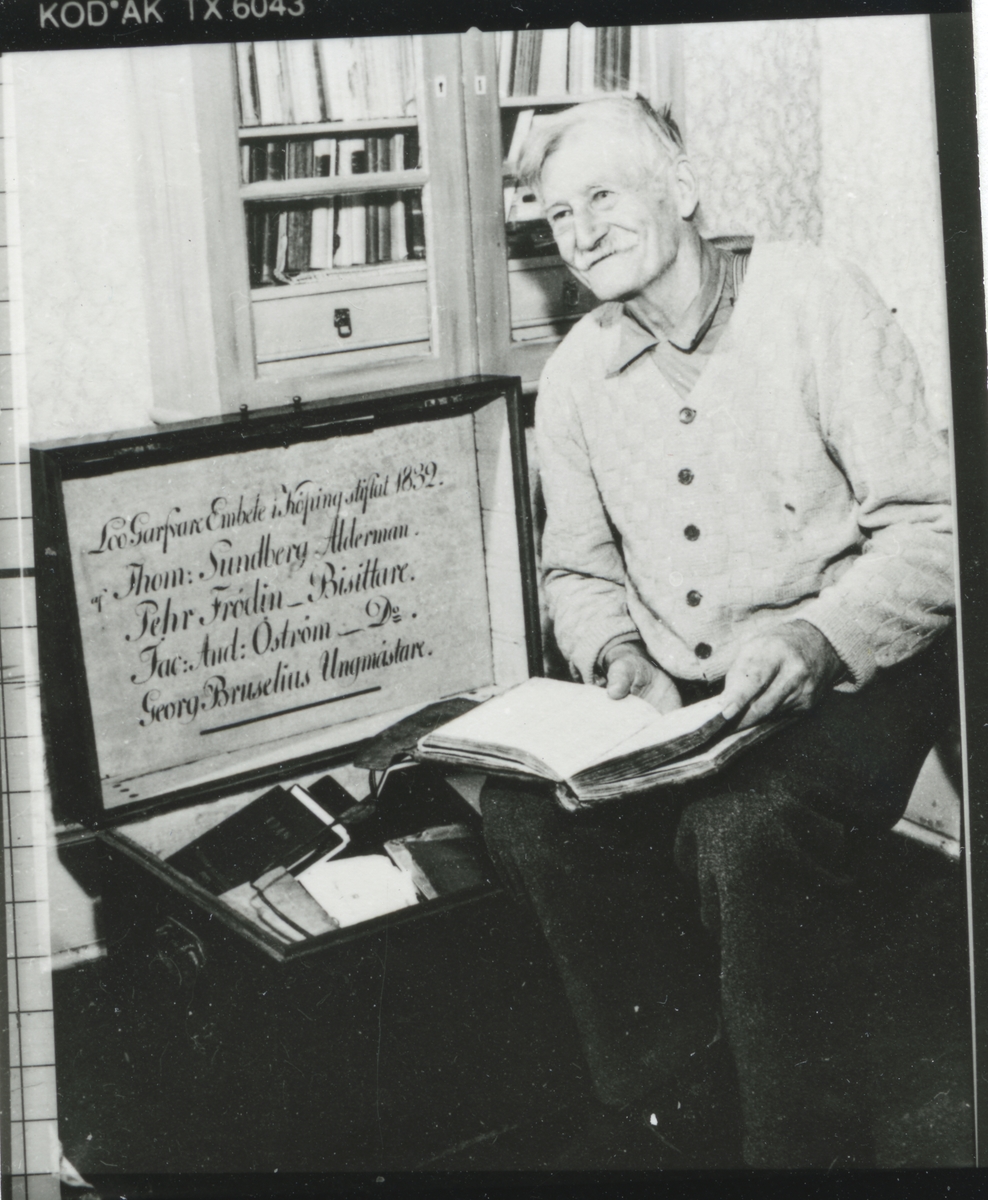 KODAK TX 6043
Löo Garfvare Embete i Köping stiftat 1832.
af Thom: Sundberg Alderman.
Pehr Frödin_ Bisittare.
Jac: And: Öström _ Do.
Georg Bruselius Ungmästare.